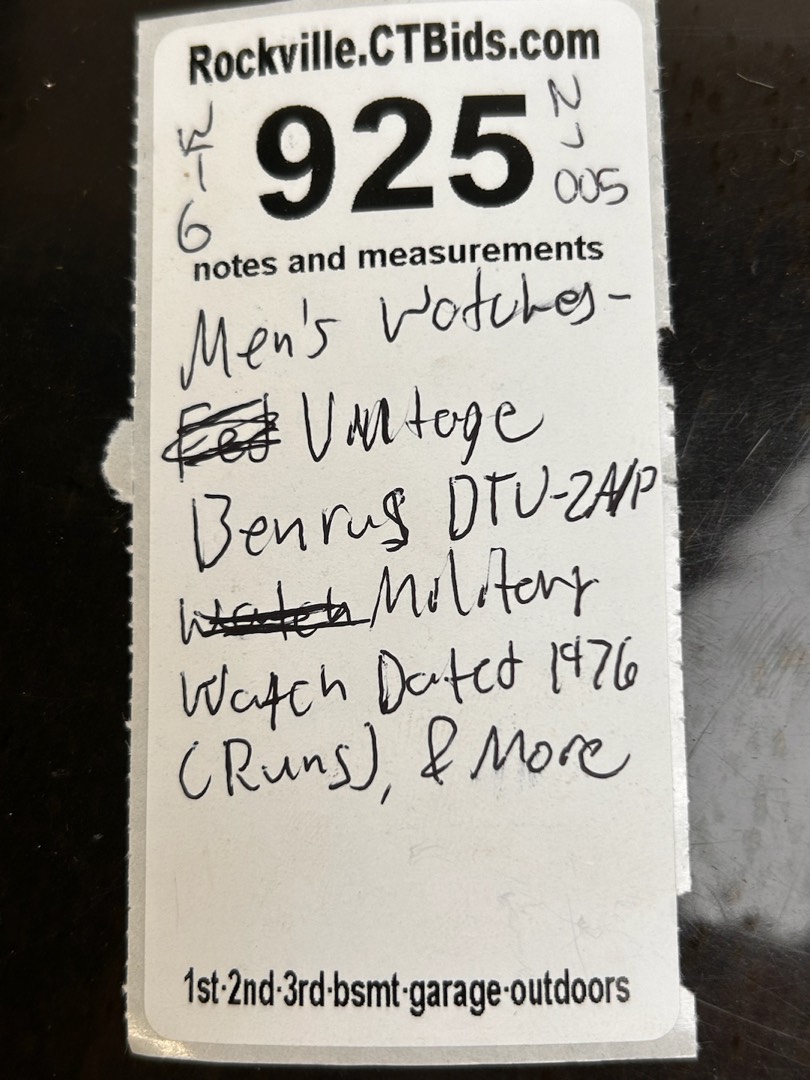 Rockville.CTBids.com
925
6
005
notes and measurements
Men's Watches-
Vintage
Benrus DTU-2A/P
Military
Watch Dated 1976
(Runs), & More
1st·2nd·3rd·bsmt·garage·outdoors